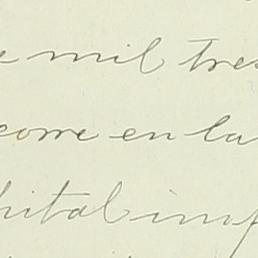 e mil tres
corre en la
pital imp